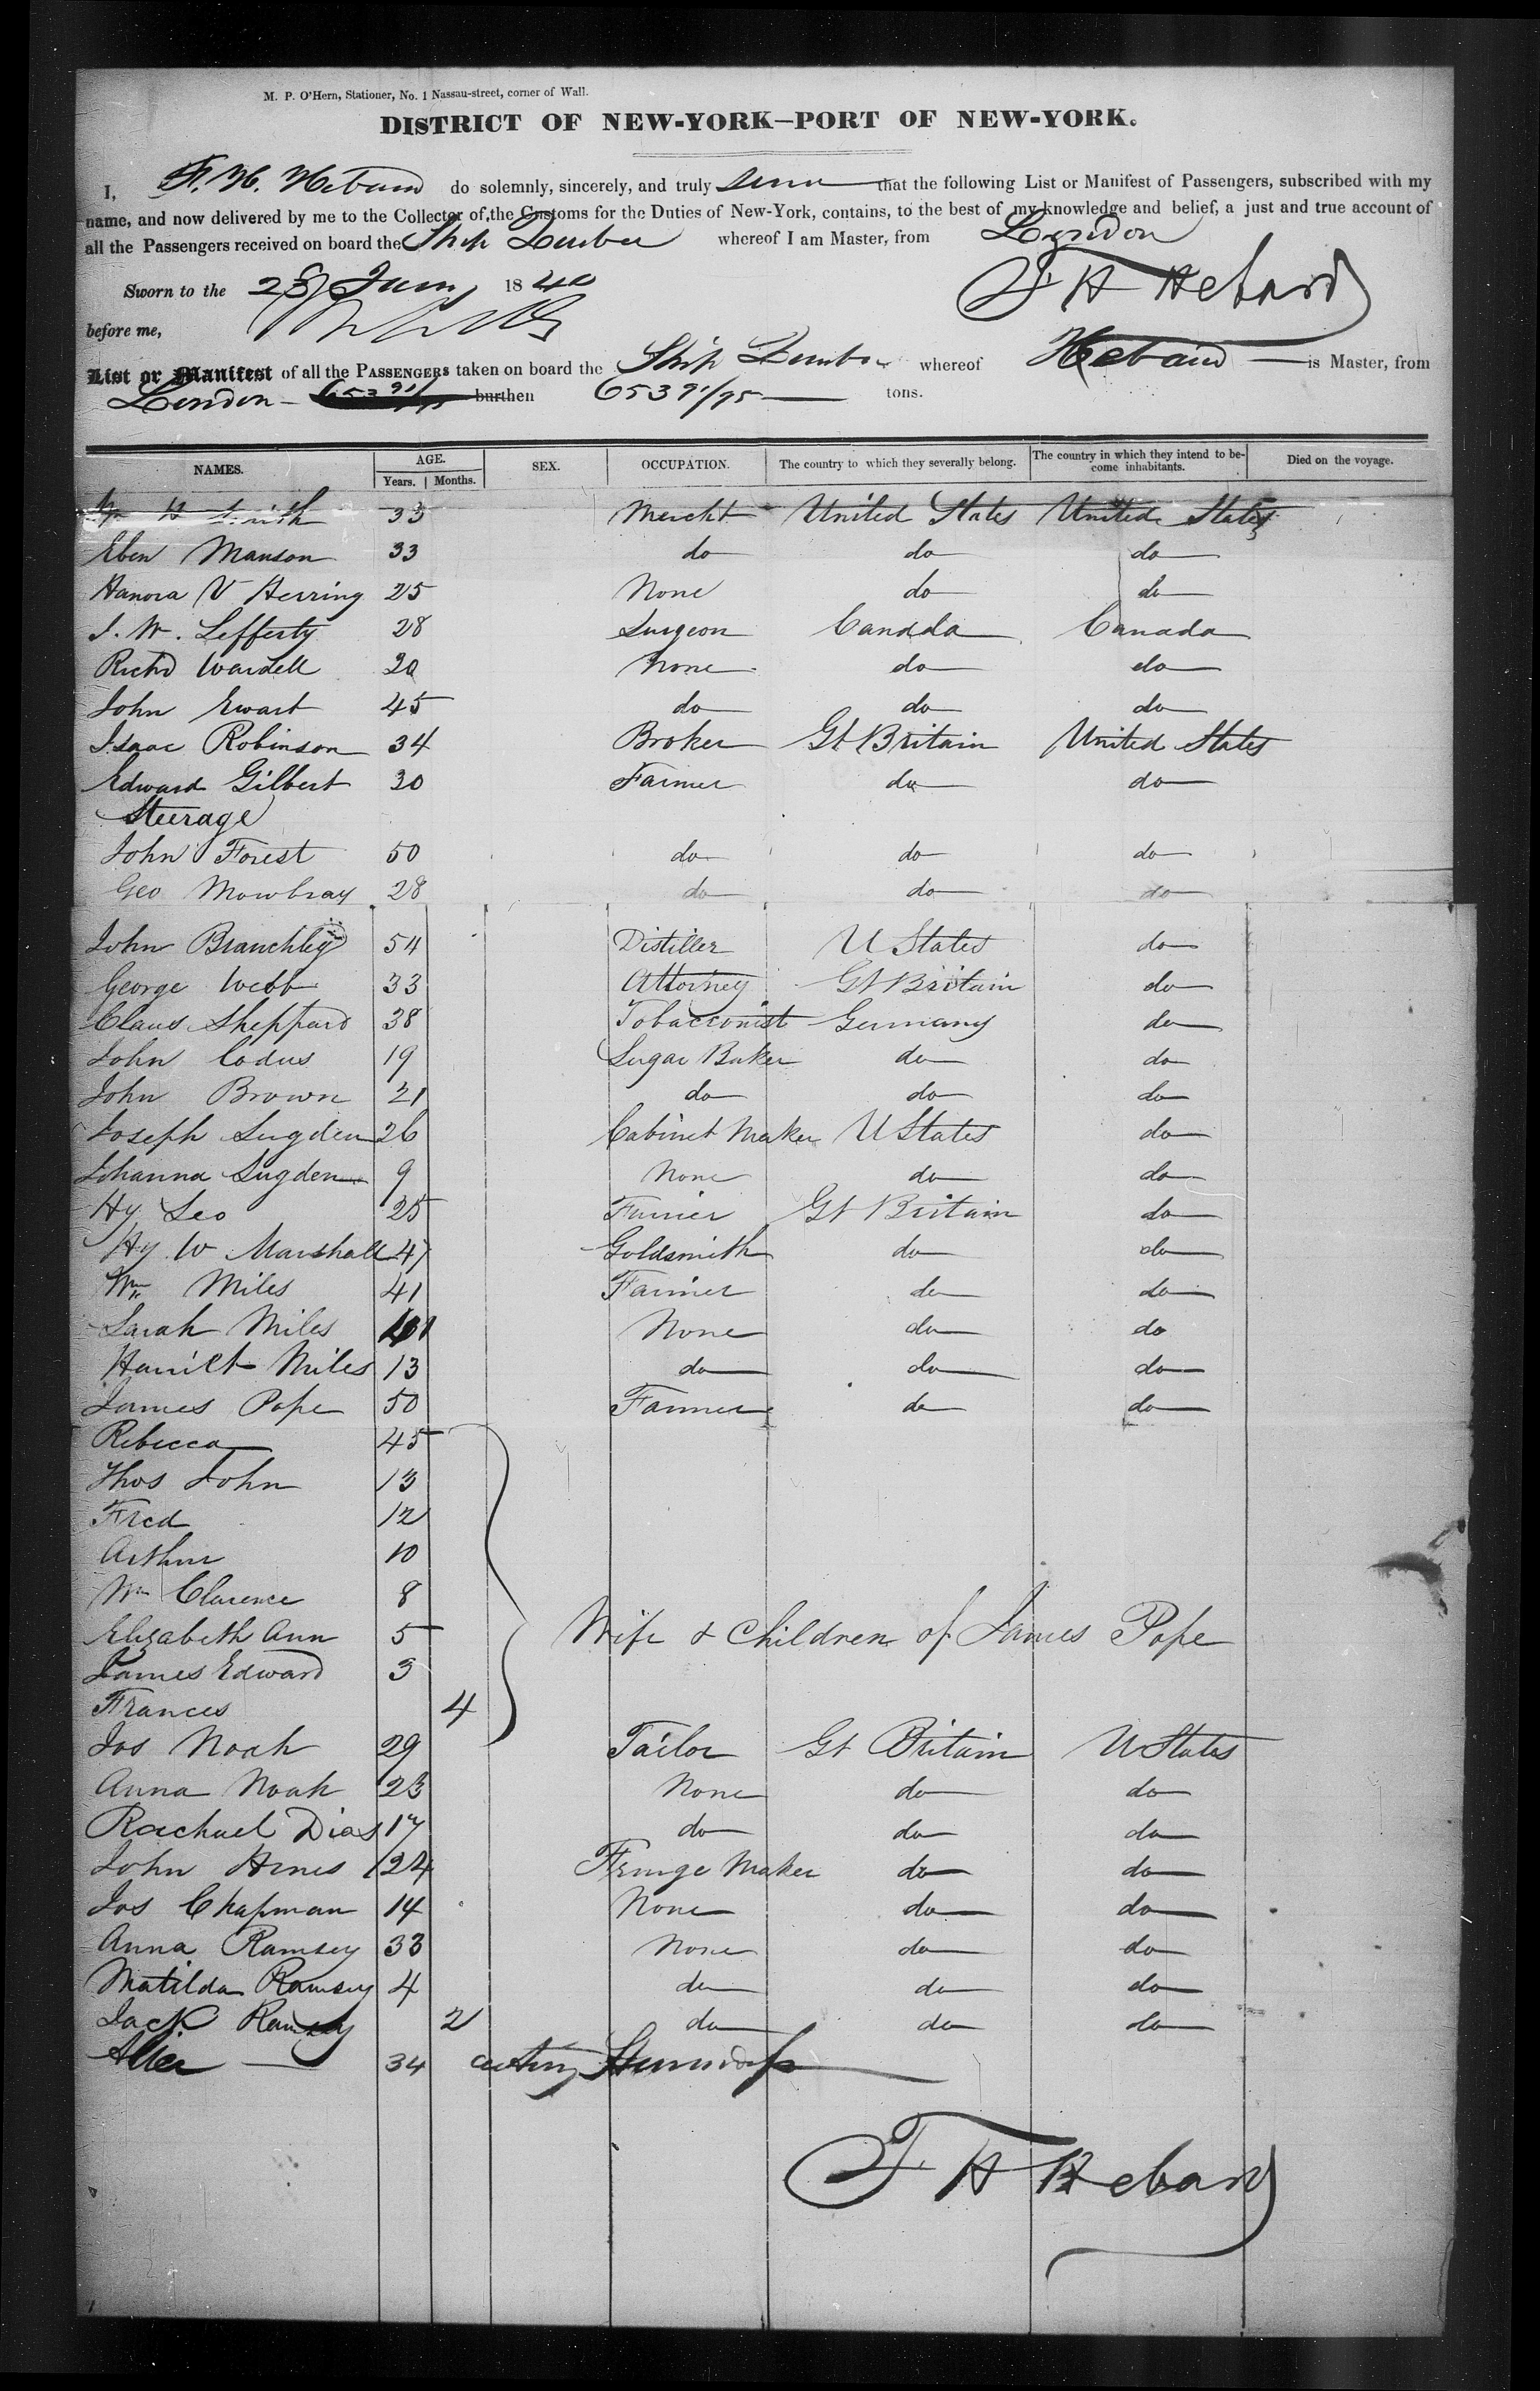 M. P. O'Hern, Stationer, No. 1 Nassau-street, corner of Wall.
DISTRICT OF NEW-YORK—PORT OF NEW-YORK.
I, F. H. Hebard do solemnly, sincerely, and truly that the following List or Manifest of Passengers, subscribed with my
name, and now delivered by me to the Collector of the Customs for the Duties of New-York, contains, to the best of my knowledge and belief, a just and true account of
all the Passengers received on board the Ship whereof I am Master, from London
Sworn to the 1840 F H Hebard
before me,
List or Manifest of all the PASSENGERS taken on board the Ship whereof Hebard is Master, from
London burthen 653 91/95 tons.
NAMES. AGE. Years. Months. SEX. OCCUPATION. The country to which they severally belong. The country in which they intend to become inhabitants. Died on the voyage.
Wm H Smith 33 Mercht United States United States
Eben Manson 33 do do do
Hanora V Herring 25 None do do
J. W. Lefferty 28 Surgeon Canada Canada
Richd Wardell 20 None do do
John Ewart 45 do do do
Isaac Robinson 34 Broker Gt Britain United States
Edward Gilbert 30 Farmer do do
Steerage
John Forest 50 do do do
Geo Mowbray 28 do do do
John Branchley 54 Distiller U States do
George Webb 33 Attorney Gt Britain do
Claus Sheppard 38 Tobacconist Germany do
John Codus 19 Sugar Baker do do
John Brown 21 do do do
Joseph Sugden 26 Cabinet Maker U States do
Johanna Sugden 9 None do do
Hy Leo 25 Furrier Gt Britain do
Hy W Marshall 47 Goldsmith do do
Wm Miles 41 Farmer do do
Sarah Miles None do do
Harriet Miles 13 do do do
James Pope 50 Farmer do do
Rebecca 45
Thos John 13
Fred 12
Arthur 10
Wm Clarence 8
Elizabeth Ann 5 Wife & Children of James Pope
James Edward 3
Frances 4
Jos Noah 29 Tailor Gt Britain U States
Anna Noah 23 None do do
Rachael Dias 17 do do do
John Hines 24 Fringe Maker do do
Jos Chapman 14 None do do
Anna Ramsey 33 None do do
Matilda Ramsey 4 do do do
Jack Ramsey 2 do do do
34
F H Hebard